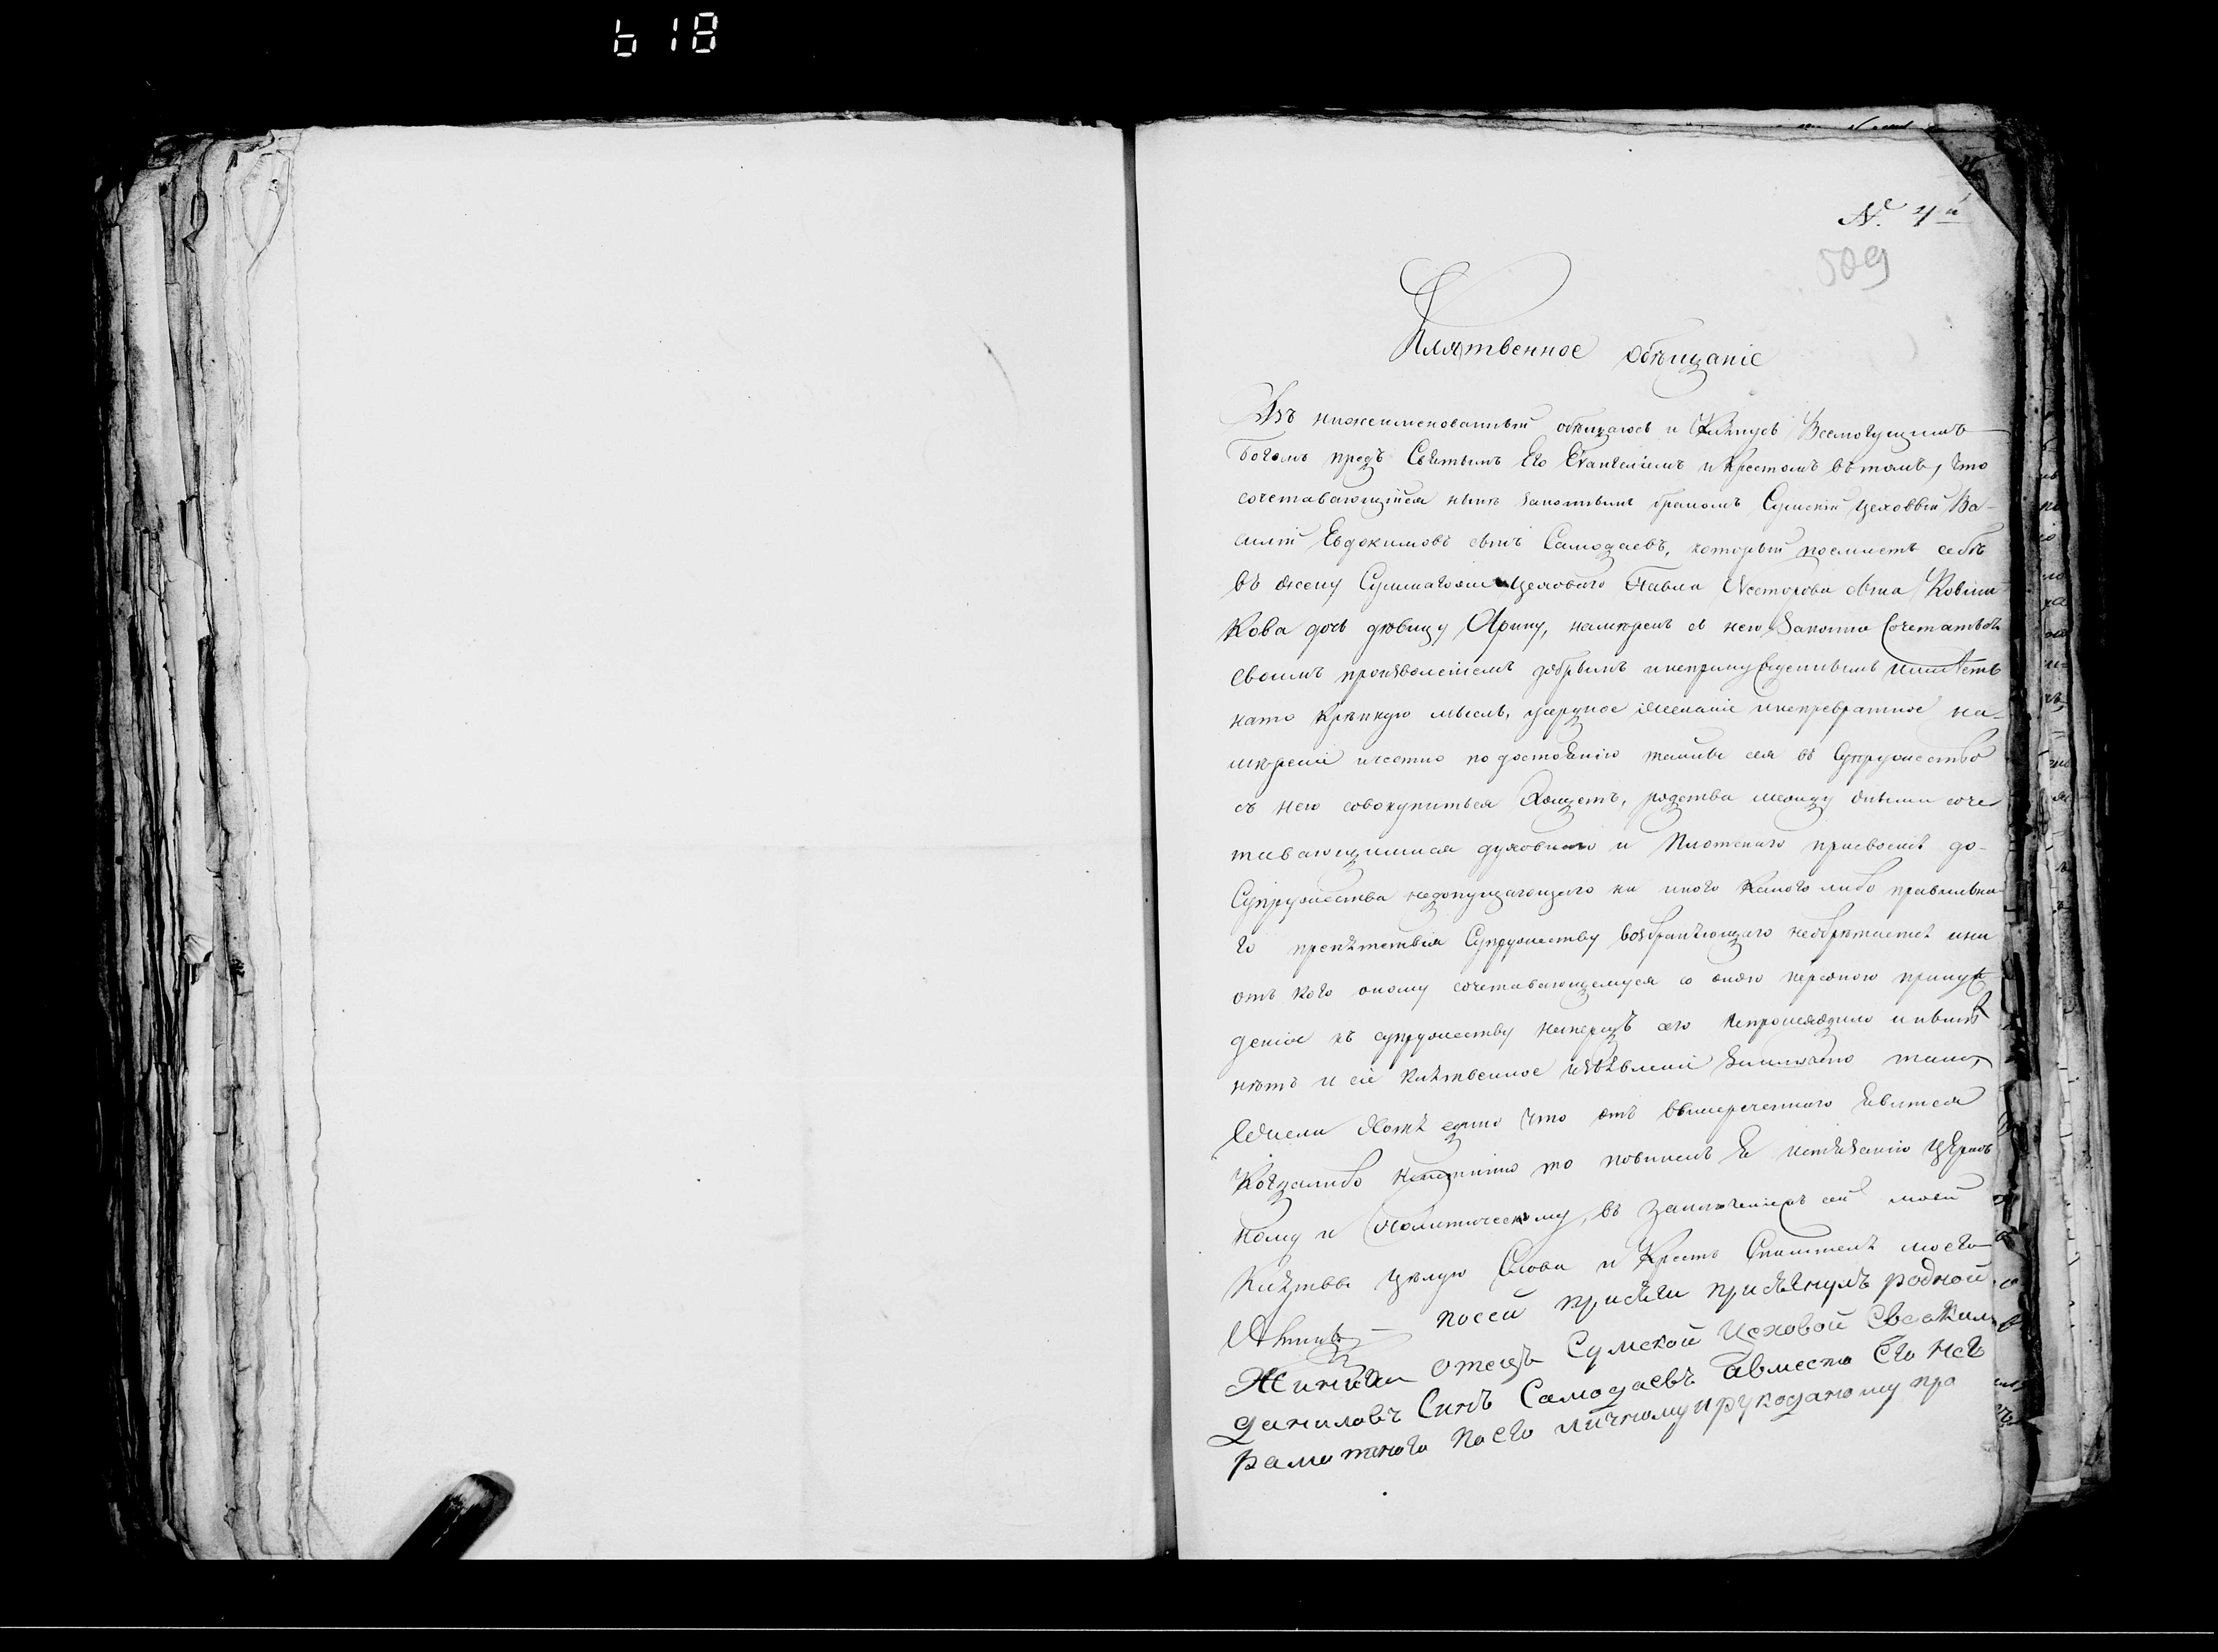 618
№ 4й
509
Клятвенное обѣщаніе
Азъ нижеименованный обѣщаюсь и Клянусь Всемогущимъ
Богомъ предъ Святымъ Его Евангеліемъ и Крестомъ въ томъ, что
сочетавающійся нынѣ законнымъ бракомъ Сумскій Цеховый Ва-
силій Евдокимовъ сынъ Самодаевъ, который поемлетъ себѣ
въ жену Сумскаго Цеховаго Павла Несторова сына
кова дочь дѣвицу Арину, намѣренъ съ нею Законно Сочетатся
своимъ произволеніемъ добрымъ и непринужденнымъ имѣетъ
на то крѣпкую мысль, усердное желаніе и непревратное на-
мѣреніе и естно по достоянію тайны сея въ Супружество
съ нею совокупиться хощетъ, родства между сими соче
тавающимися духовнаго и Плотскаго присвоенія до-
Супружества недопущающаго ни иного какого либо правильна
го препятствія Супружеству возбраняющаго необрѣтается и ни
отъ кого оному сочетавающемуся со оною персоною принуж
денія къ супружеству напередъ сего непроисходило и нынѣ
нѣтъ и сіе клятвенное извѣявленіе тако,
хотя едино что отъ вышереченнаго явится
Когдалибо то повиненъ я истязанію Церков
ному и Политическому, въ заключеніе сей моей
Клятвы цѣлую Слова и Крестъ Спасителя моего
Аминь — посей присяги присягнулъ родной
Жениха отецъ Сумской Цеховой Евдоким
Даниловъ Синъ Самодаевъ авместо Его нег
рамотного по его личному и рукоданому про